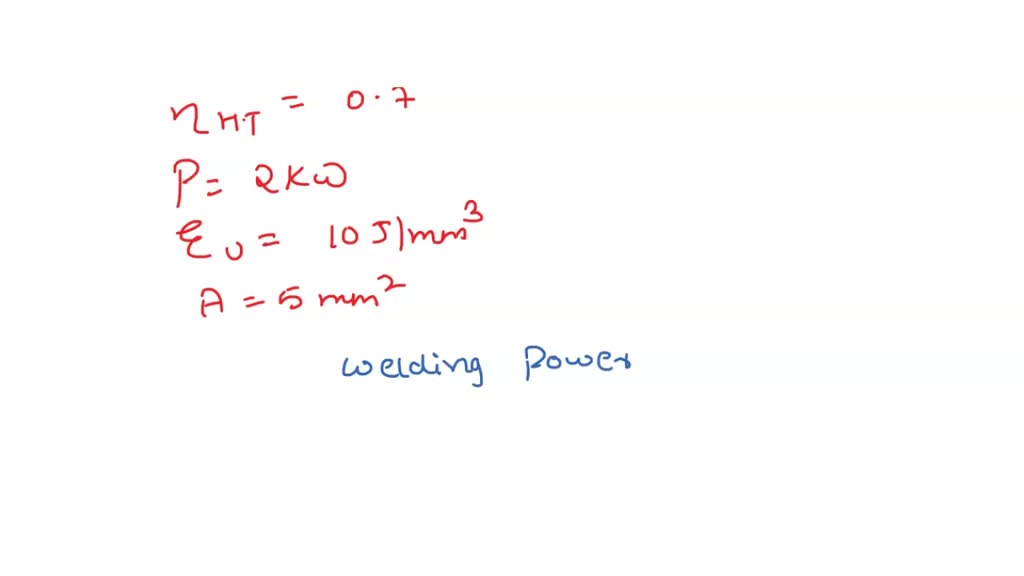 η HT = 0.7
P = 2KW
ξ U = 10 J/mm³
A = 5 mm²
welding Power